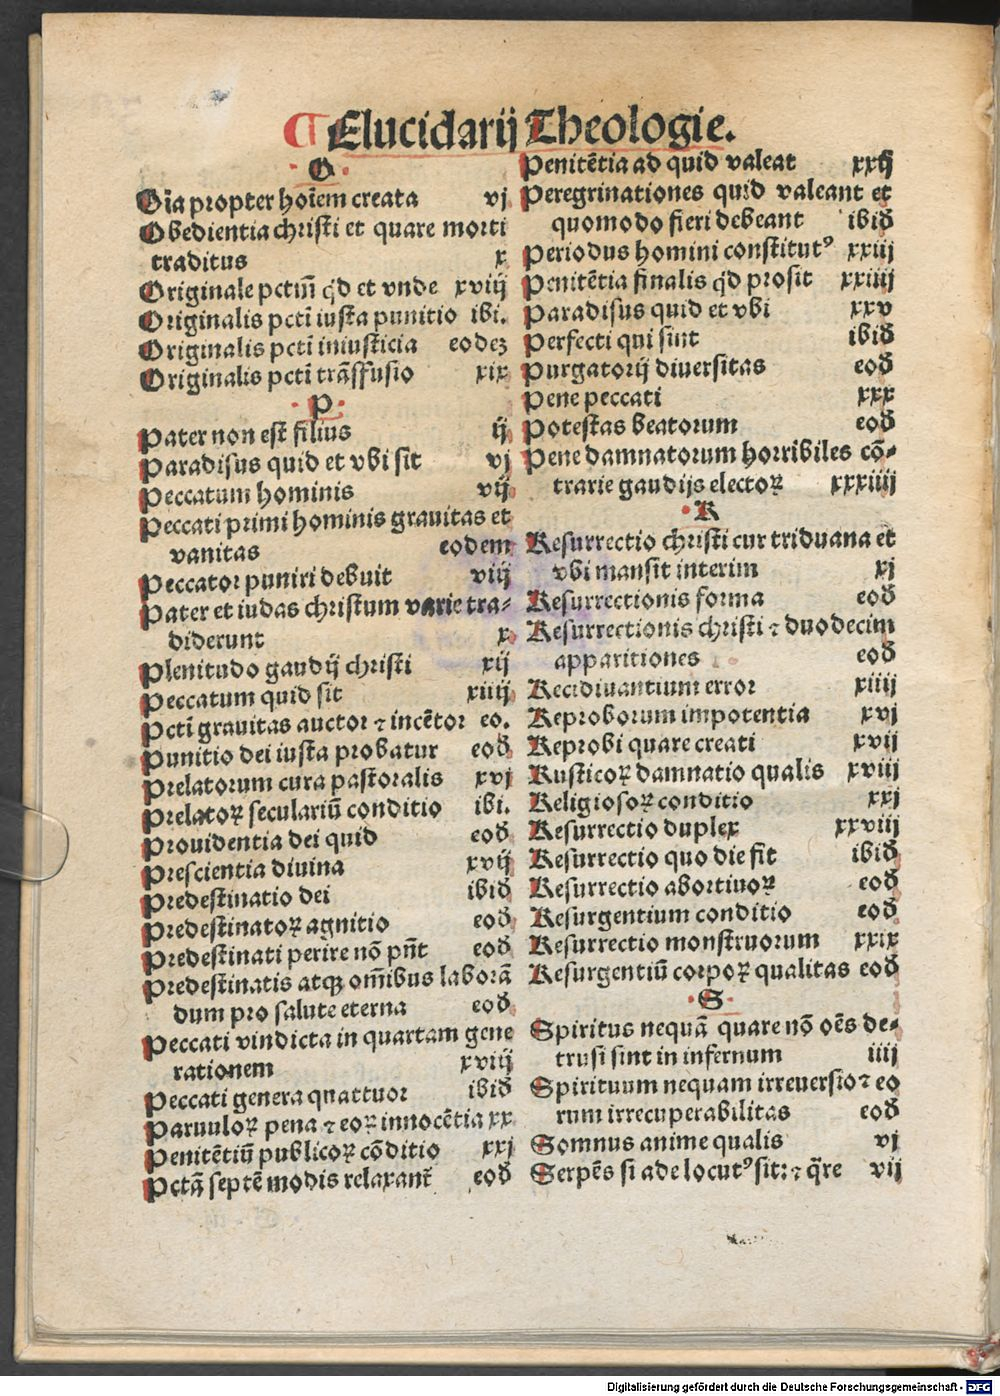 ¶ Elucidarij Theologie.
·O·
Oĩa propter hoĩem creata vj
Obedientia christi et quare morti
traditus x
Originale pctm̃ qd̓ et vnde xviij
Originalis pcti iusta punitio ibi.
Originalis pcti iniusticia eodeʒ
Originalis pcti trãsfusio xix
·P·
Pater non est filius ij
Paradisus quid et vbi sit vj
Peccatum hominis vij
Peccati primi hominis grauitas et
vanitas eodem
Peccator puniri debuit viij
Pater et iudas christum varie tra-
diderunt x
Plenitudo gaudij christi xij
Peccatum quid sit xiiij
Pcti grauitas auctor ⁊ incẽtor eo.
Punitio dei iusta probatur eod̓
Prelatorum cura pastoralis xvj
Prelatoꝝ seculariũ conditio ibi.
Prouidentia dei quid eod̓
Prescientia diuina xvij
Predestinatio dei ibid̓
Predestinatoꝝ agnitio eod̓
Predestinati perire nõ pñt eod̓
Predestinatis atqꝫ om̃ibus laborã
dum pro salute eterna eod̓
Peccati vindicta in quartam gene
rationem xviij
Peccati genera quattuor ibid̓
Paruuloꝝ pena ⁊ eoꝝ innocẽtia xx
Penitẽtiũ publicoꝝ cõditio xxj
Pctã septẽ modis relaxant̃ eod̓
Penitẽtia ad quid valeat xxij
Peregrinationes quid valeant et
quomodo fieri debeant ibid̓
Periodus homini constitutꝰ xxiij
Penitẽtia finalis qd̓ prosit xxiiij
Paradisus quid et vbi xxv
Perfecti qui sint ibid̓
Purgatorij diuersitas eod̓
Pene peccati xxx
Potestas beatorum eod̓
Pene damnatorum horribiles cõ-
trarie gaudijs electoꝝ xxxiiij
·R
Resurrectio christi cur triduana et
vbi mansit interim xj
Resurrectionis forma eod̓
Resurrectionis christi ⁊ duodecim
apparitiones eod̓
Recidiuantium error xiiij
Reproborum impotentia xvj
Reprobi quare creati xvij
Rusticoꝝ damnatio qualis xviij
Religiosoꝝ conditio xxj
Resurrectio duplex xxviij
Resurrectio quo die fit ibid̓
Resurrectio abortiuoꝝ eod̓
Resurgentium conditio eod̓
Resurrectio monstruorum xxix
Resurgentiũ corpoꝝ qualitas eod̓
·S·
Spiritus nequã quare nõ oẽs de-
trusi sint in infernum iiij
Spirituum nequam irreuersio ⁊ eo
rum irrecuperabilitas eod̓
Somnus anime qualis vj
Serpẽs si ade locutꝰ sit: ⁊ q̃re vij
Digitalisierung gefördert durch die Deutsche Forschungsgemeinschaft - DFG